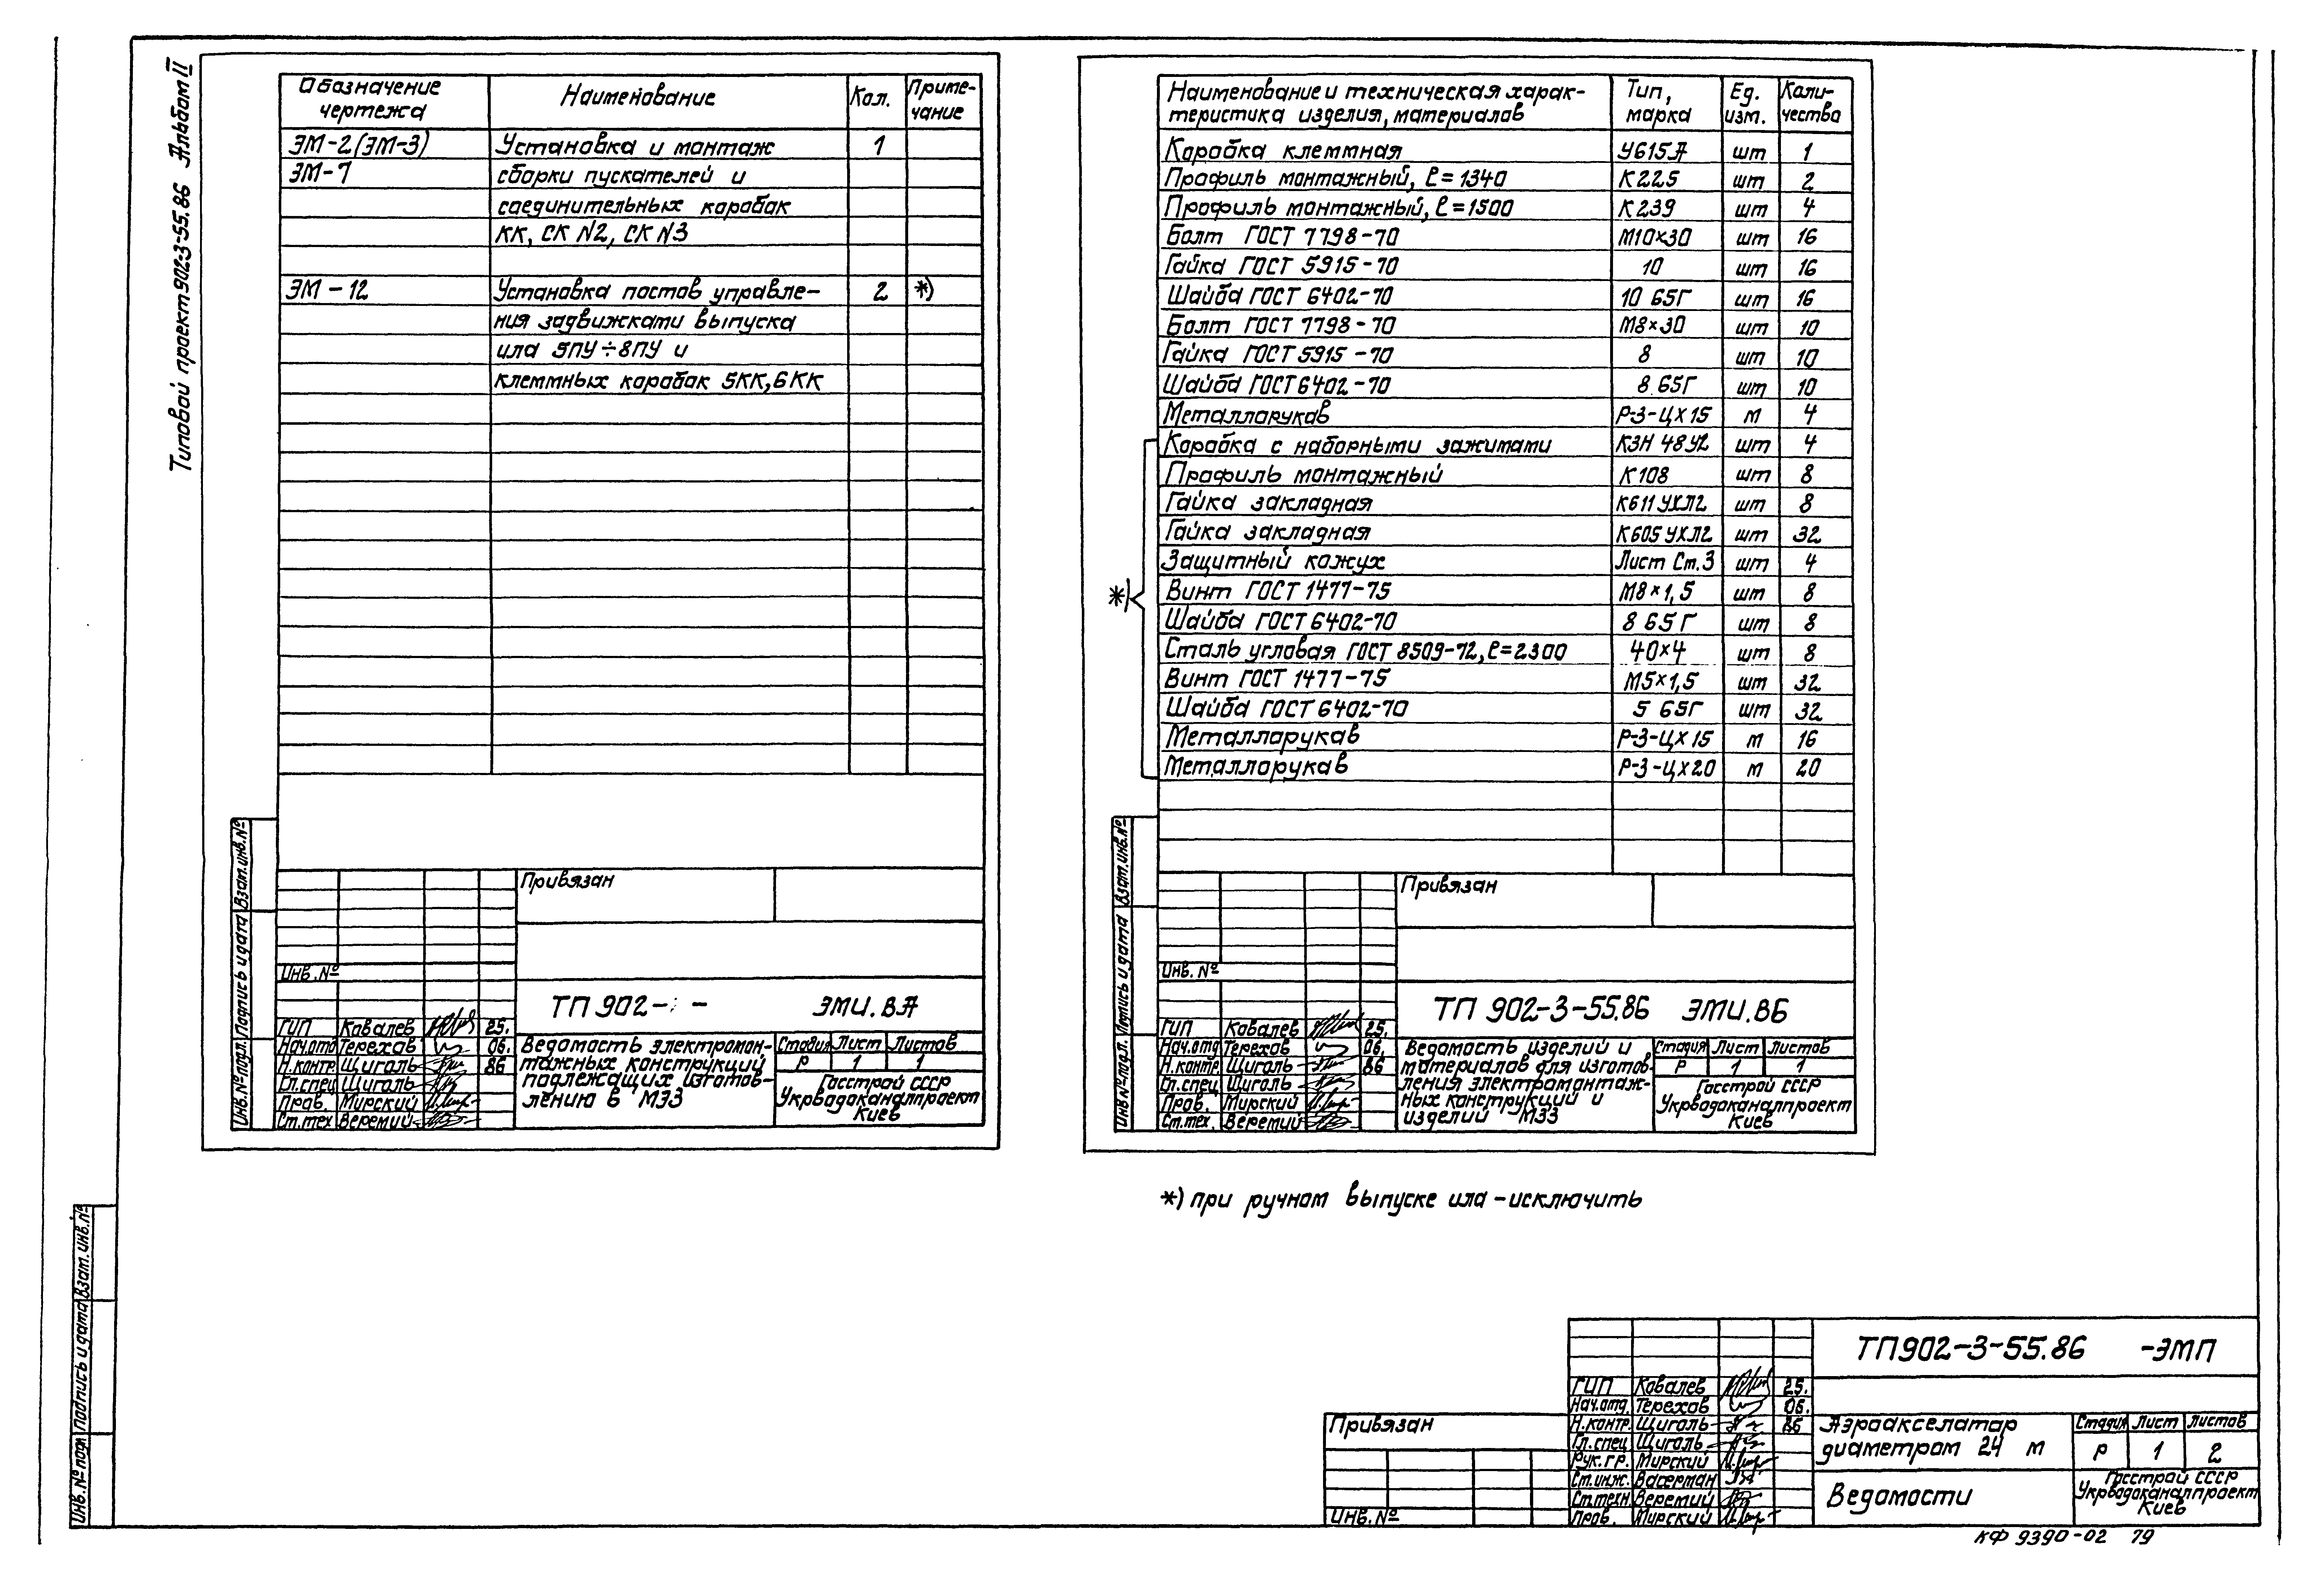 Типовой проект 902-3-55.86 Альбом II
Обозначение чертежа | Наименование | Кол. | Приме-чание
ЭМ-2 (ЭМ-3) | Установка и монтаж | 1
ЭМ-7 | сборки пускателей и
соединительных коробок
КК, СК N2, СК N3
ЭМ-12 | Установка постов управле- | 2 | *)
ния задвижками выпуска
ила 5ПУ÷8ПУ и
клеммных коробок 5КК,6КК
Взам.инв.№
Подпись и дата
Инв.№ подл.
Привязан
Инв.№
ТП 902- - ЭМИ.ВА
ГИП Ковалев 25.
Нач.отд Терехов 06.
Н.контр. Щиголь 86
Гл.спец Щиголь
Пров. Мирский
Ст.тех Веремий
Ведомость электромон-
тажных конструкций
подлежащих изготов-
лению в МЭЗ
Стадия Лист Листов
Р 1 1
Госстрой СССР
Укрводоканалпроект
Киев
Наименование и техническая харак-теристика изделия, материалов | Тип, марка | Ед. изм. | Коли-чество
Коробка клеммная У615А шт 1
Профиль монтажный, ℓ=1340 К225 шт 2
Профиль монтажный, ℓ=1500 К239 шт 4
Болт ГОСТ 7798-70 М10×30 шт 16
Гайка ГОСТ 5915-70 10 шт 16
Шайба ГОСТ 6402-70 10 65Г шт 16
Болт ГОСТ 7798-70 М8×30 шт 10
Гайка ГОСТ 5915-70 8 шт 10
Шайба ГОСТ 6402-70 8 65Г шт 10
Металлорукав Р-3-ЦХ15 м 4
Коробка с наборными зажимами КЗН 48У2 шт 4
Профиль монтажный К108 шт 8
Гайка закладная К611 УХЛ2 шт 8
Гайка закладная К605 УХЛ2 шт 32
Защитный кожух Лист Ст.3 шт 4
*)
Винт ГОСТ 1477-75 М8×1,5 шт 8
Шайба ГОСТ 6402-70 8 65Г шт 8
Сталь угловая ГОСТ 8509-72, ℓ=2300 40×4 шт 8
Винт ГОСТ 1477-75 М5×1,5 шт 32
Шайба ГОСТ 6402-70 5 65Г шт 32
Металлорукав Р-3-ЦХ15 м 16
Металлорукав Р-3-ЦХ20 м 20
Взам.инв.№
Подпись и дата
Инв.№ подл.
Привязан
Инв.№
ТП 902-3-55.86 ЭМИ.ВБ
ГИП Ковалев 25.
Нач.отд Терехов 06.
Н.контр. Щиголь 86
Гл.спец Щиголь
Пров. Мирский
Ст.тех. Веремий
Ведомость изделий и
материалов для изготов-
ления электромонтаж-
ных конструкций и
изделий МЭЗ
Стадия Лист Листов
Р 1 1
Госстрой СССР
Укрводоканалпроект
Киев
*) при ручном выпуске ила - исключить
Взам.инв.№
Подпись и дата
Инв.№ подл
Привязан
Инв.№
ТП902-3-55.86 -ЭМП
ГИП Ковалев 25.
Нач.отд. Терехов 06.
Н.контр. Щиголь 86
Гл.спец Щиголь
Рук.гр. Мирский
Ст.инж. Васерман
Ст.техн. Веремий
Пров. Мирский
Аэроакселатор
диаметром 24 м
Стадия Лист Листов
Р 1 2
Ведомости
Госстрой СССР
Укрводоканалпроект
Киев
КФ 9390-02 79